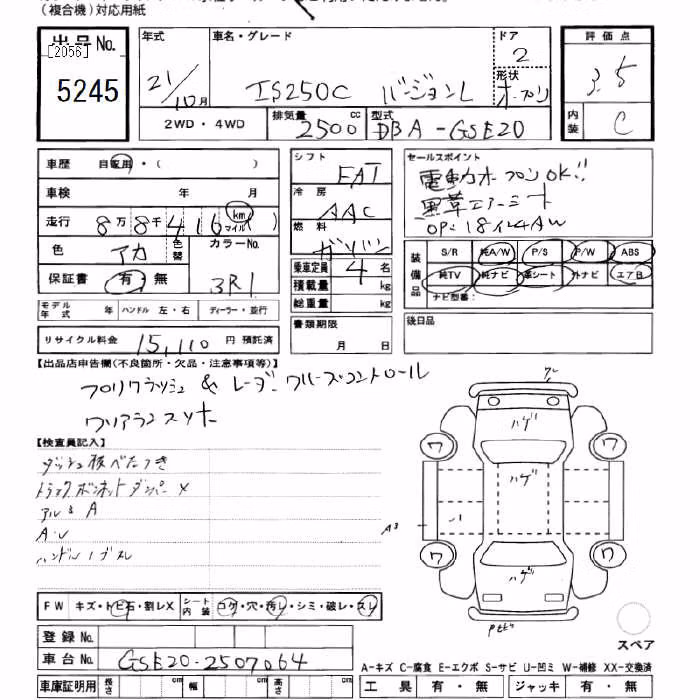 (複合機)対応用紙
出品No.
[2056]
5245
年式
21/10月
車名・グレード
IS250C バージョンL
ドア
2
形状
オープン
評価点
3.5
内装
C
2WD・4WD
排気量
2500 cc
型式
DBA-GSE20
車歴 自家用・( )
車検 年 月
走行 8万8千416 km マイル( )
色 アカ 色替
カラーNo.
3R1
保証書 有・無
モデル年式 年 ハンドル 左・右 ディーラー・並行
リサイクル料金 15,110 円 預託済
シフト
FAT
冷房
AAC
燃料
ガソリン
乗車定員 4 名
積載量 kg
総重量 kg
書類期限
月 日
セールスポイント
電動オープンOK!!
黒革エアーシート
OP・18インチAW
装備品
S/R 純A/W P/S P/W ABS
純TV 純ナビ 革シート 外ナビ エアB
ナビ型番:
後日品
【出品店申告欄(不良箇所・欠品・注意事項等)】
プリクラッシュ & レーダークルーズコントロール
クリアランスソナー
【検査員記入】
ダッシュ板べたつき
トランクボンネットダンパー×
アルミ A
A・U
ハンドルコスレ
FW キズ・トビ石・割レX シート内装 コゲ・穴・汚レ・シミ・破レ・スレ
登録No.
車台No. GSE20-2507064
車庫証明用 長さ cm 幅 cm 高さ cm
ハゲ
ワ ワ
ハゲ
A3
ワ ワ
ハゲ
スペア
A-キズ C-腐食 E-エクボ S-サビ U-凹ミ W-補修 XX-交換済
工具 有・無 ジャッキ 有・無